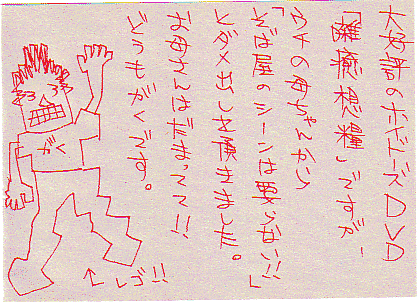 大好評のホドーズDVD
「離癒想糧」ですが、
ウチの母ちゃんから
「そば屋のシーンは要らない!!」
とダメ出しを頂きました。
お母さんはだまってて!!
どうもがくです。
がく
←レゴ!!